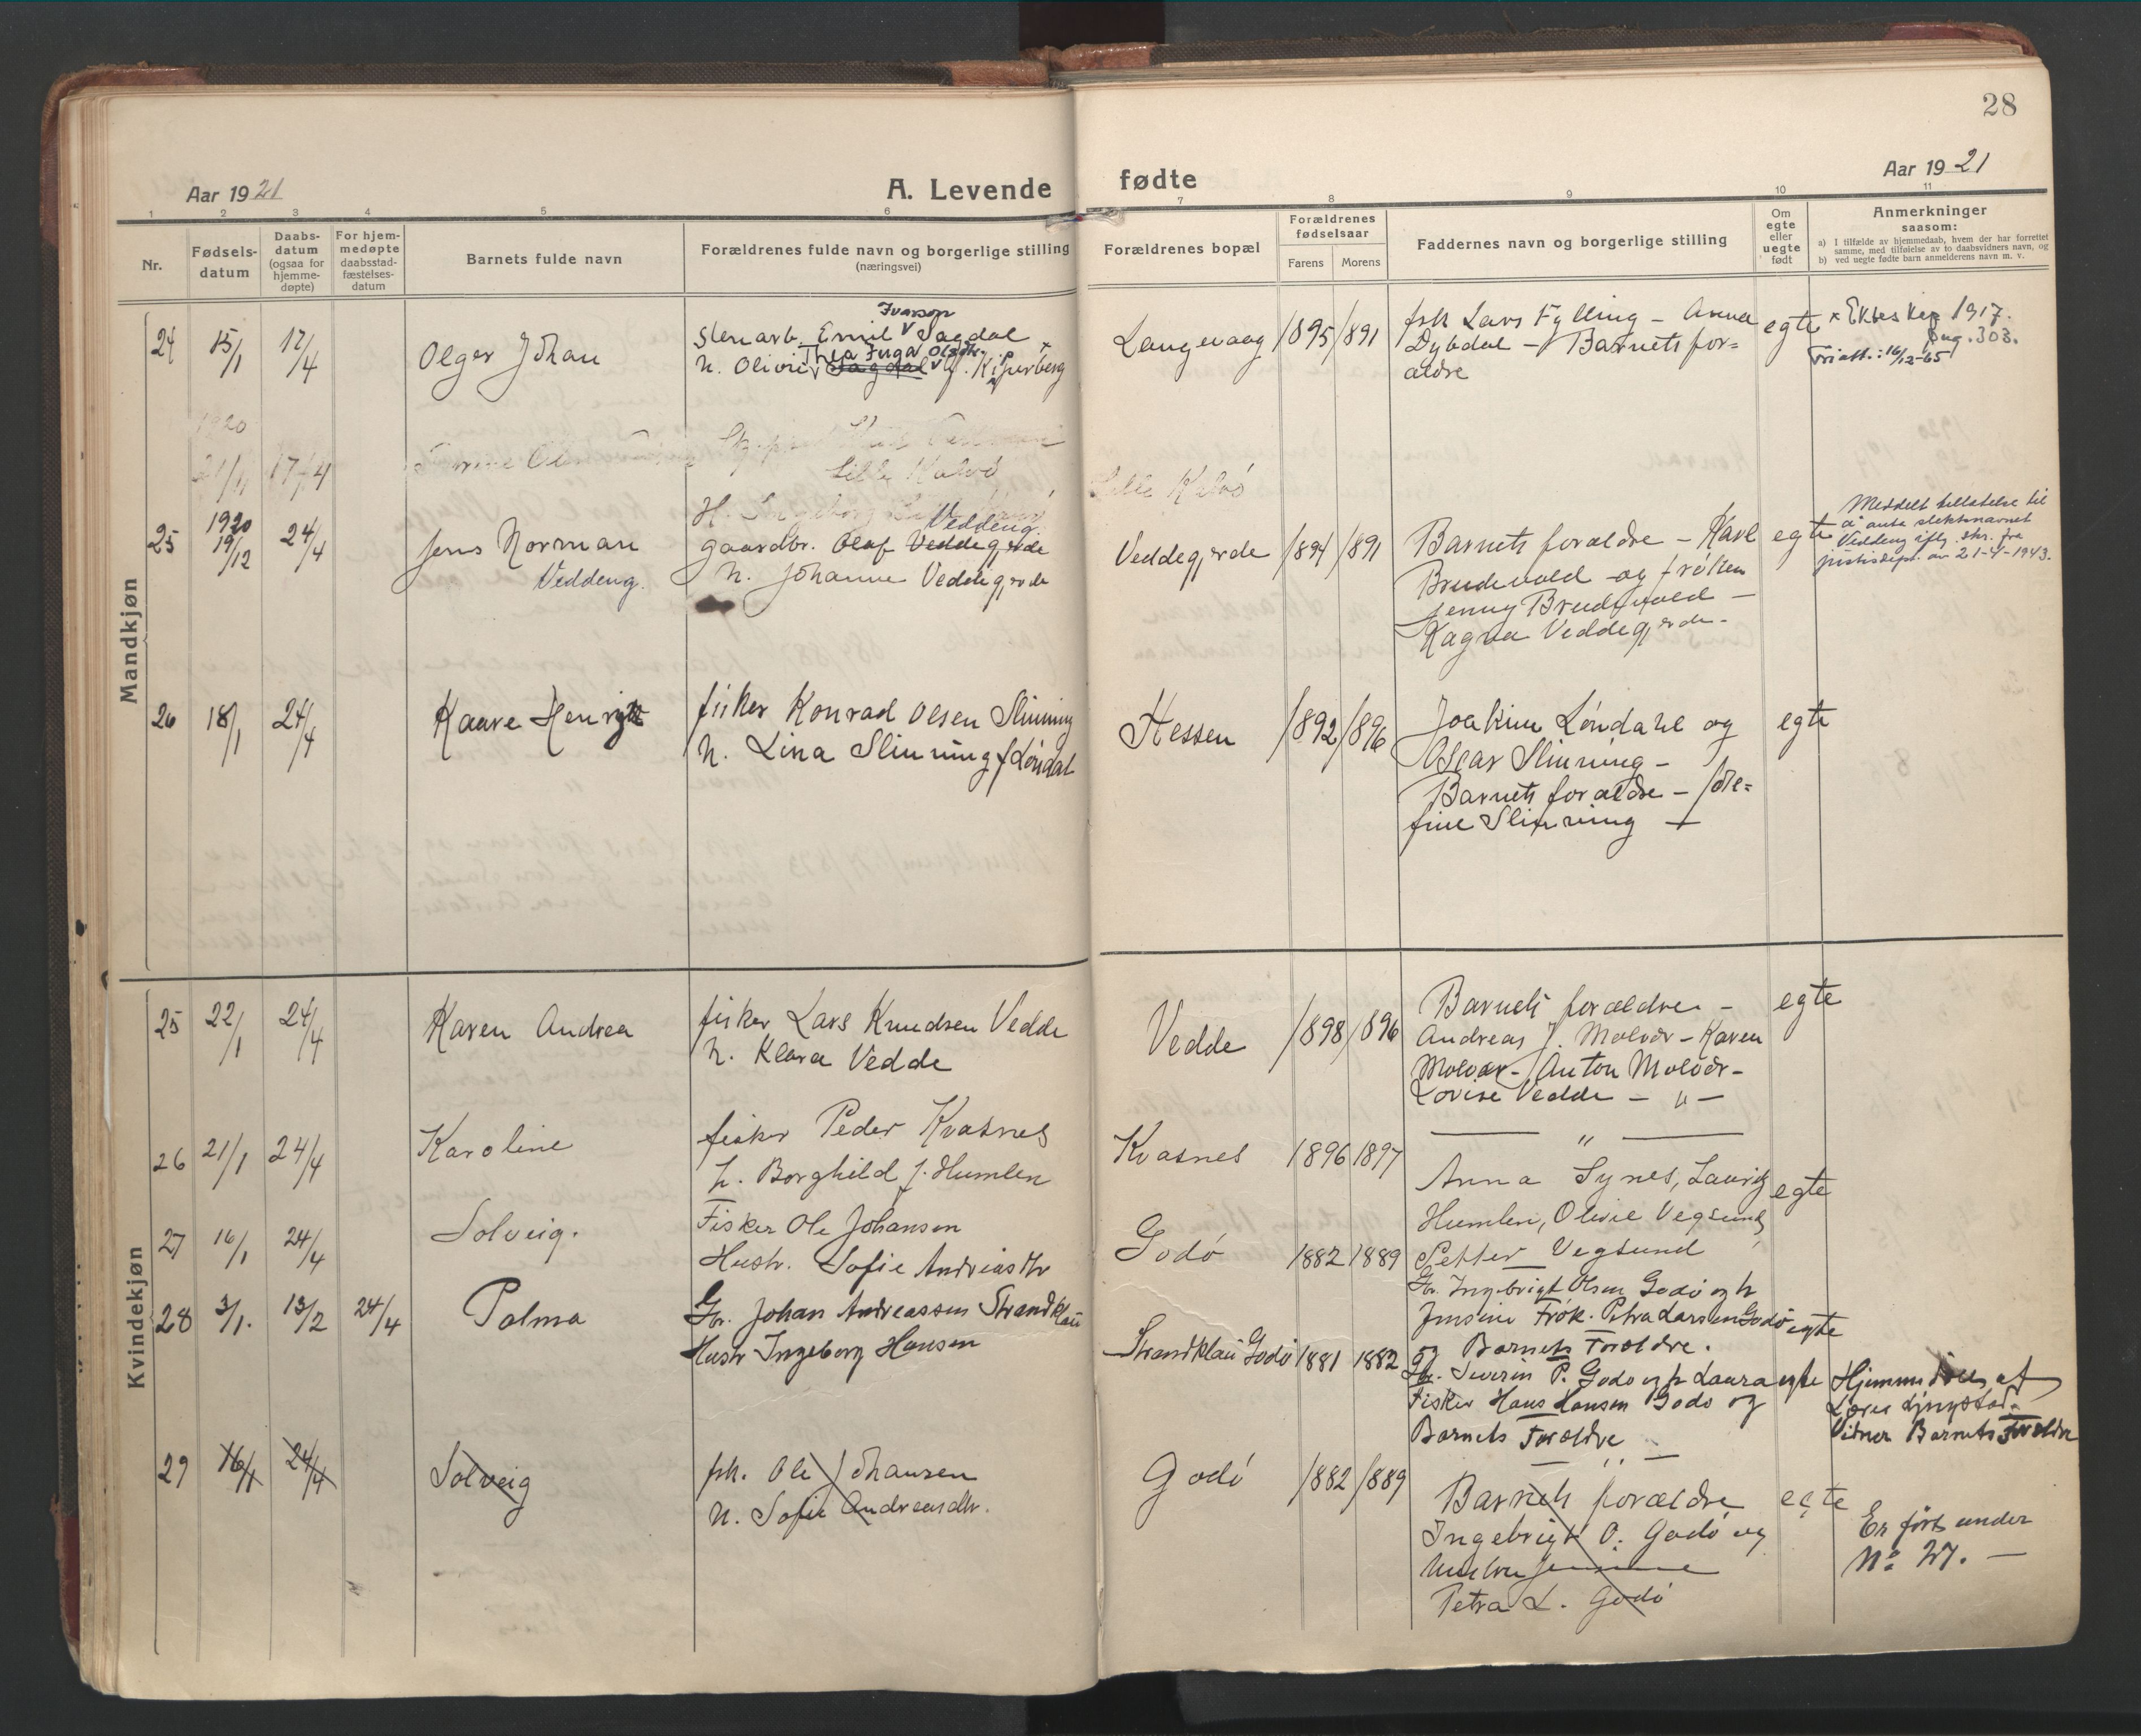 28
Aar 1921
A. Levende
fødte
Aar 1921
1 2 3 4 5 6 7 8 9 10 11
Nr.
Fødsels-
datum
Daabs-
datum
(ogsaa for
hjemme-
døpte)
For hjem-
medøpte
daabsstad-
fæstelses-
datum
Barnets fulde navn
Forældrenes fulde navn og borgerlige stilling
(næringsvei)
Forældrenes bopæl
Forældrenes
fødselsaar
Farens Morens
Faddernes navn og borgerlige stilling
Om
egte
eller
uegte
født
Anmerkninger
saasom:
a) I tilfælde av hjemmedaab, hvem der har forrettet
samme, med tilføielse av to daabsvidners navn, og
b) ved uegte fødte barn anmelderens navn m. v.
Mandkjøn
24 15/1 17/4 Olger Johan
Ivarson
Stenarb. Emil Sagdal
Thea Inga Olsdtr.
h. Olivie Sagdal f. Kiperberg
Langevaag 1895 1891
fsk Lars Fylling – Anna
Dybdal – Barnets for=
ældre
egte
x Ekteskap 1917.
303.
Friatt.: 16/12-65
1920
21/11 17/4
Lille Kalvø
Lille Kalvø
25 1920 19/12 24/4 Jens Norman
Veddeng.
Veddeng
gaardbr. Olaf Veddegjerde
h. Johanne Veddegjerde
Veddegjerde 1894 1891
Barnets forældre – Karl
Brudevold og frøken
Jenny Brudevold –
Ragna Veddegjerde –
egte
Meddelt tillatelse til
å anta slektsnavnet
Veddeng iflg. skr. fra
justisdept. av 21-4-1943.
26 18/1 24/4 Kaare Henrik
fisker Konrad Olsen Slinning
h. Lina Slinning f Løndal
Hessen 1892 1896
Joakim Løndahl og
Oscar Slinning –
Barnets forældre –
fine Slinning –
egte
Kvindekjøn
25 22/1 24/4 Karen Andrea
fisker Lars Knudsen Vedde
h. Klara Vedde
Vedde 1898 1896
Barnets forældre –
Andreas J. Molvær – Karen
Molvær – Anton Molvær –
Lovise Vedde – " –
egte
26 21/1 24/4 Karoline
fisker Peder Kvasnes
h. Borghild f. Humlen
Kvasnes 1896 1897
— " —
Anna Synes, Lauritz
Humlen, Olivie Vegsund,
Petter Vegsund
egte
27 16/1 24/4 Solveig.
Fisker Ole Johansen
Hustr. Sofie Andreasdtr
Godø 1882 1889
Gbr. Ingebrigt Olsen Godø og h
Jensine Frøk. Petra Larsen Godø
og Barnets Forældre.
egte
28 3/1. 13/2 24/4 Palma
Gbr. Johan Andreassen Strandklau
Hustr Ingeborg Hansen
Strandklau Godø 1881 1882
Gbr. Severin P. Godø og h Laura
Fisker Hans Hansen Godø og
Barnets Forældre
— " —
egte
Hjemmedøbt af
Lærer
Vidner Barnets Forældre
29 16/1 24/4 Solveig
fsk. Ole Johansen
h. Sofie Andreasdtr.
Godø 1882 1889
Barnets forældre
Ingebrigt O. Godø og
hustru Jensine
Petra L. Godø
egte
Er ført under
No 27. –